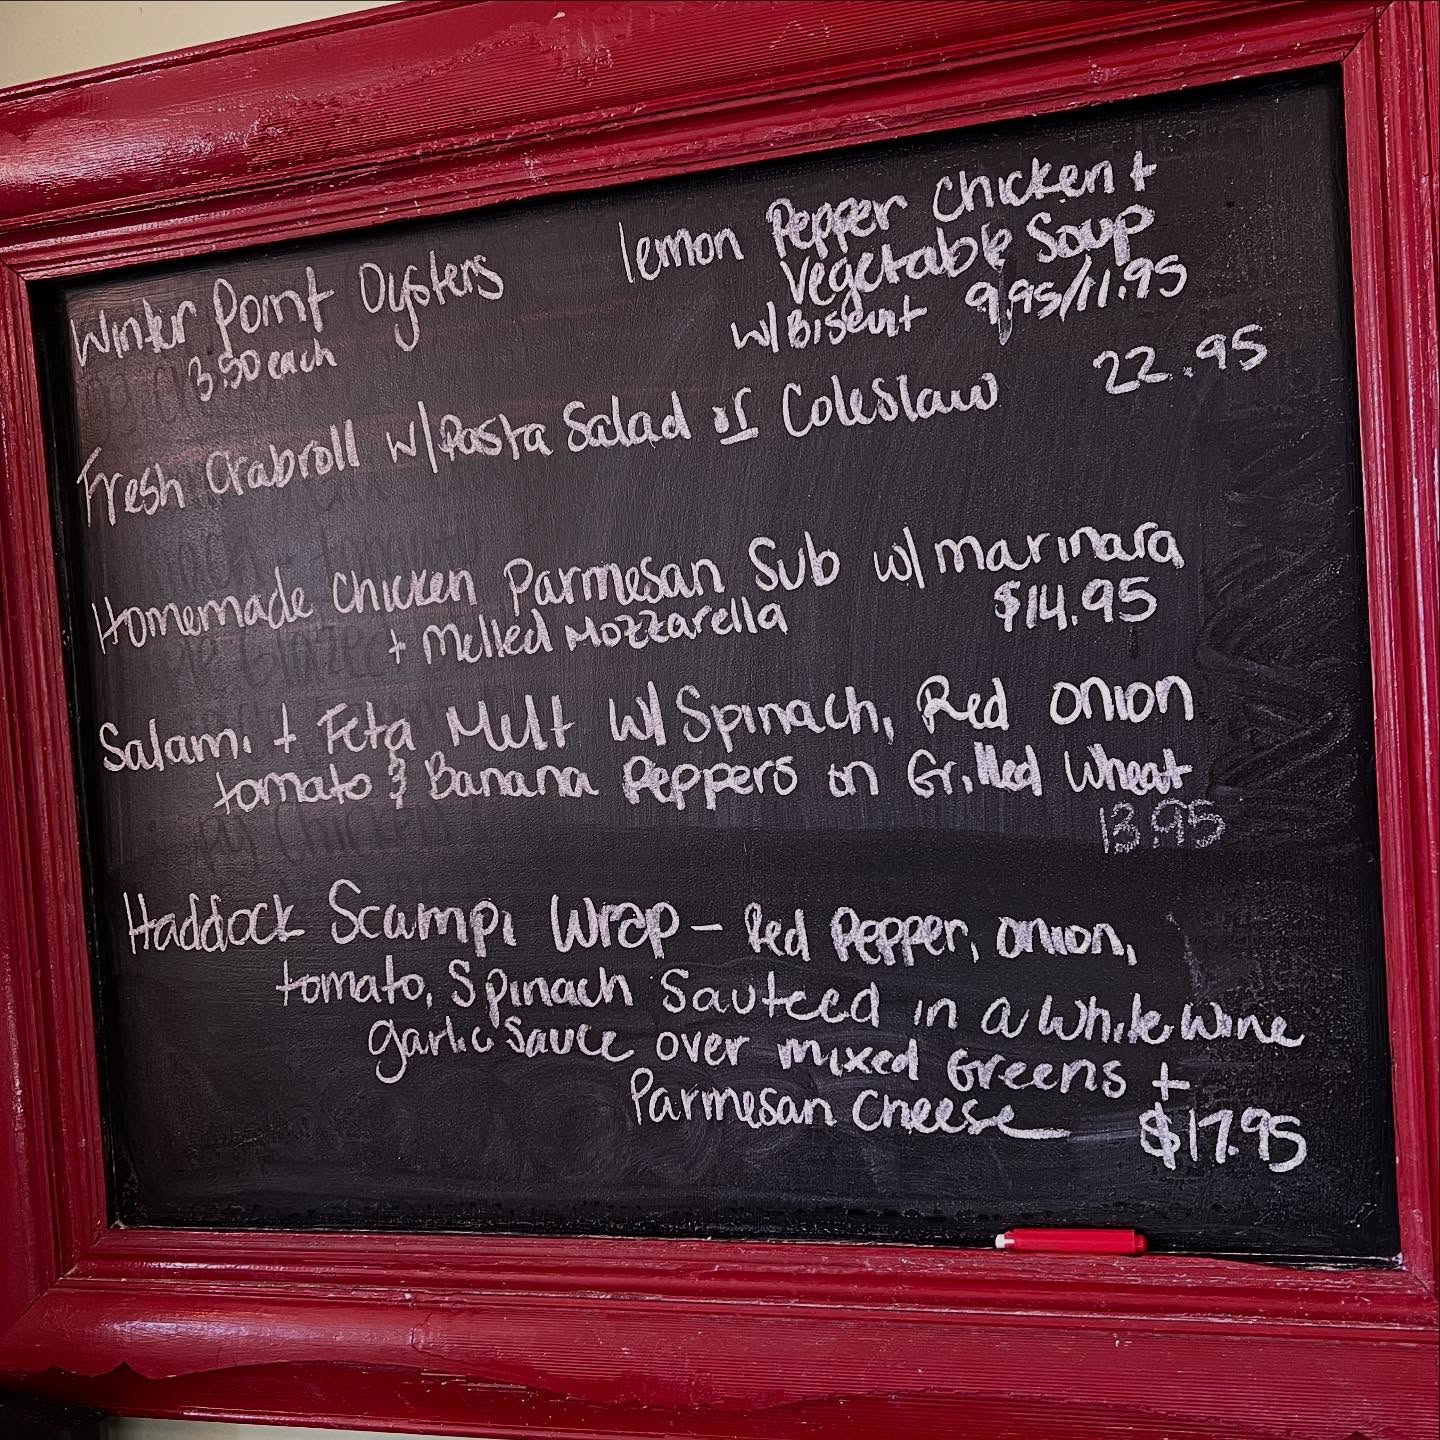 Winter Point Oysters
3.50 each
lemon Pepper Chicken +
Vegetable Soup
w/ Biscuit 9.95/11.95
Fresh Crabroll w/ Pasta Salad or Coleslaw 22.95
Homemade Chicken Parmesan Sub w/ marinara
+ Melled Mozzarella $14.95
Salami + Feta Melt w/ Spinach, Red Onion
tomato & Banana Peppers on Grilled Wheat
13.95
Haddock Scampi Wrap – Red Pepper, onion,
tomato, Spinach Sauteed in a White Wine
garlic sauce over mixed Greens +
Parmesan Cheese $17.95